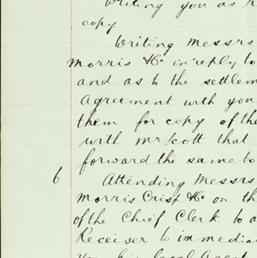 Writing you as
copy
Writing Messrs
Morris & Co in reply to
and as to the settlem
Agreement with you
them for copy of the
with Mr Scott that
forward the same to
6 Attending Messrs
Morris Crisp & Co on th
of the Chief Clerk to a
Receiver to immedia